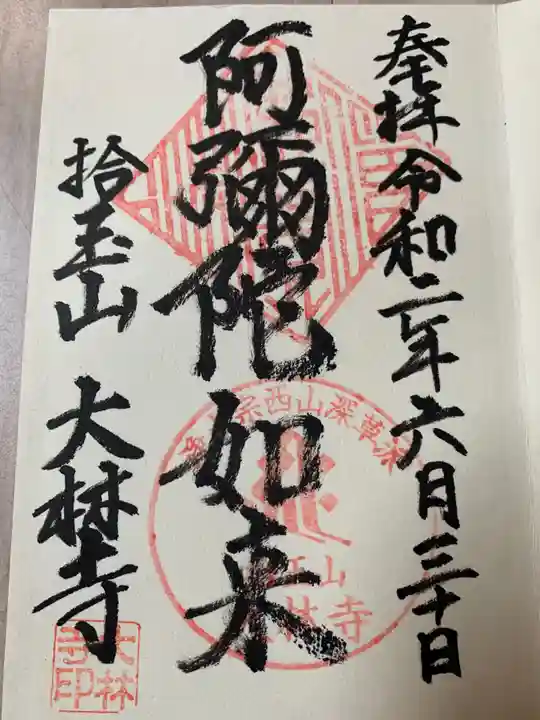 奉拝令和二年六月三十日
阿彌陀如来
拾玉山 大林寺
宗西山深草派
玉山
林寺
大林
寺印